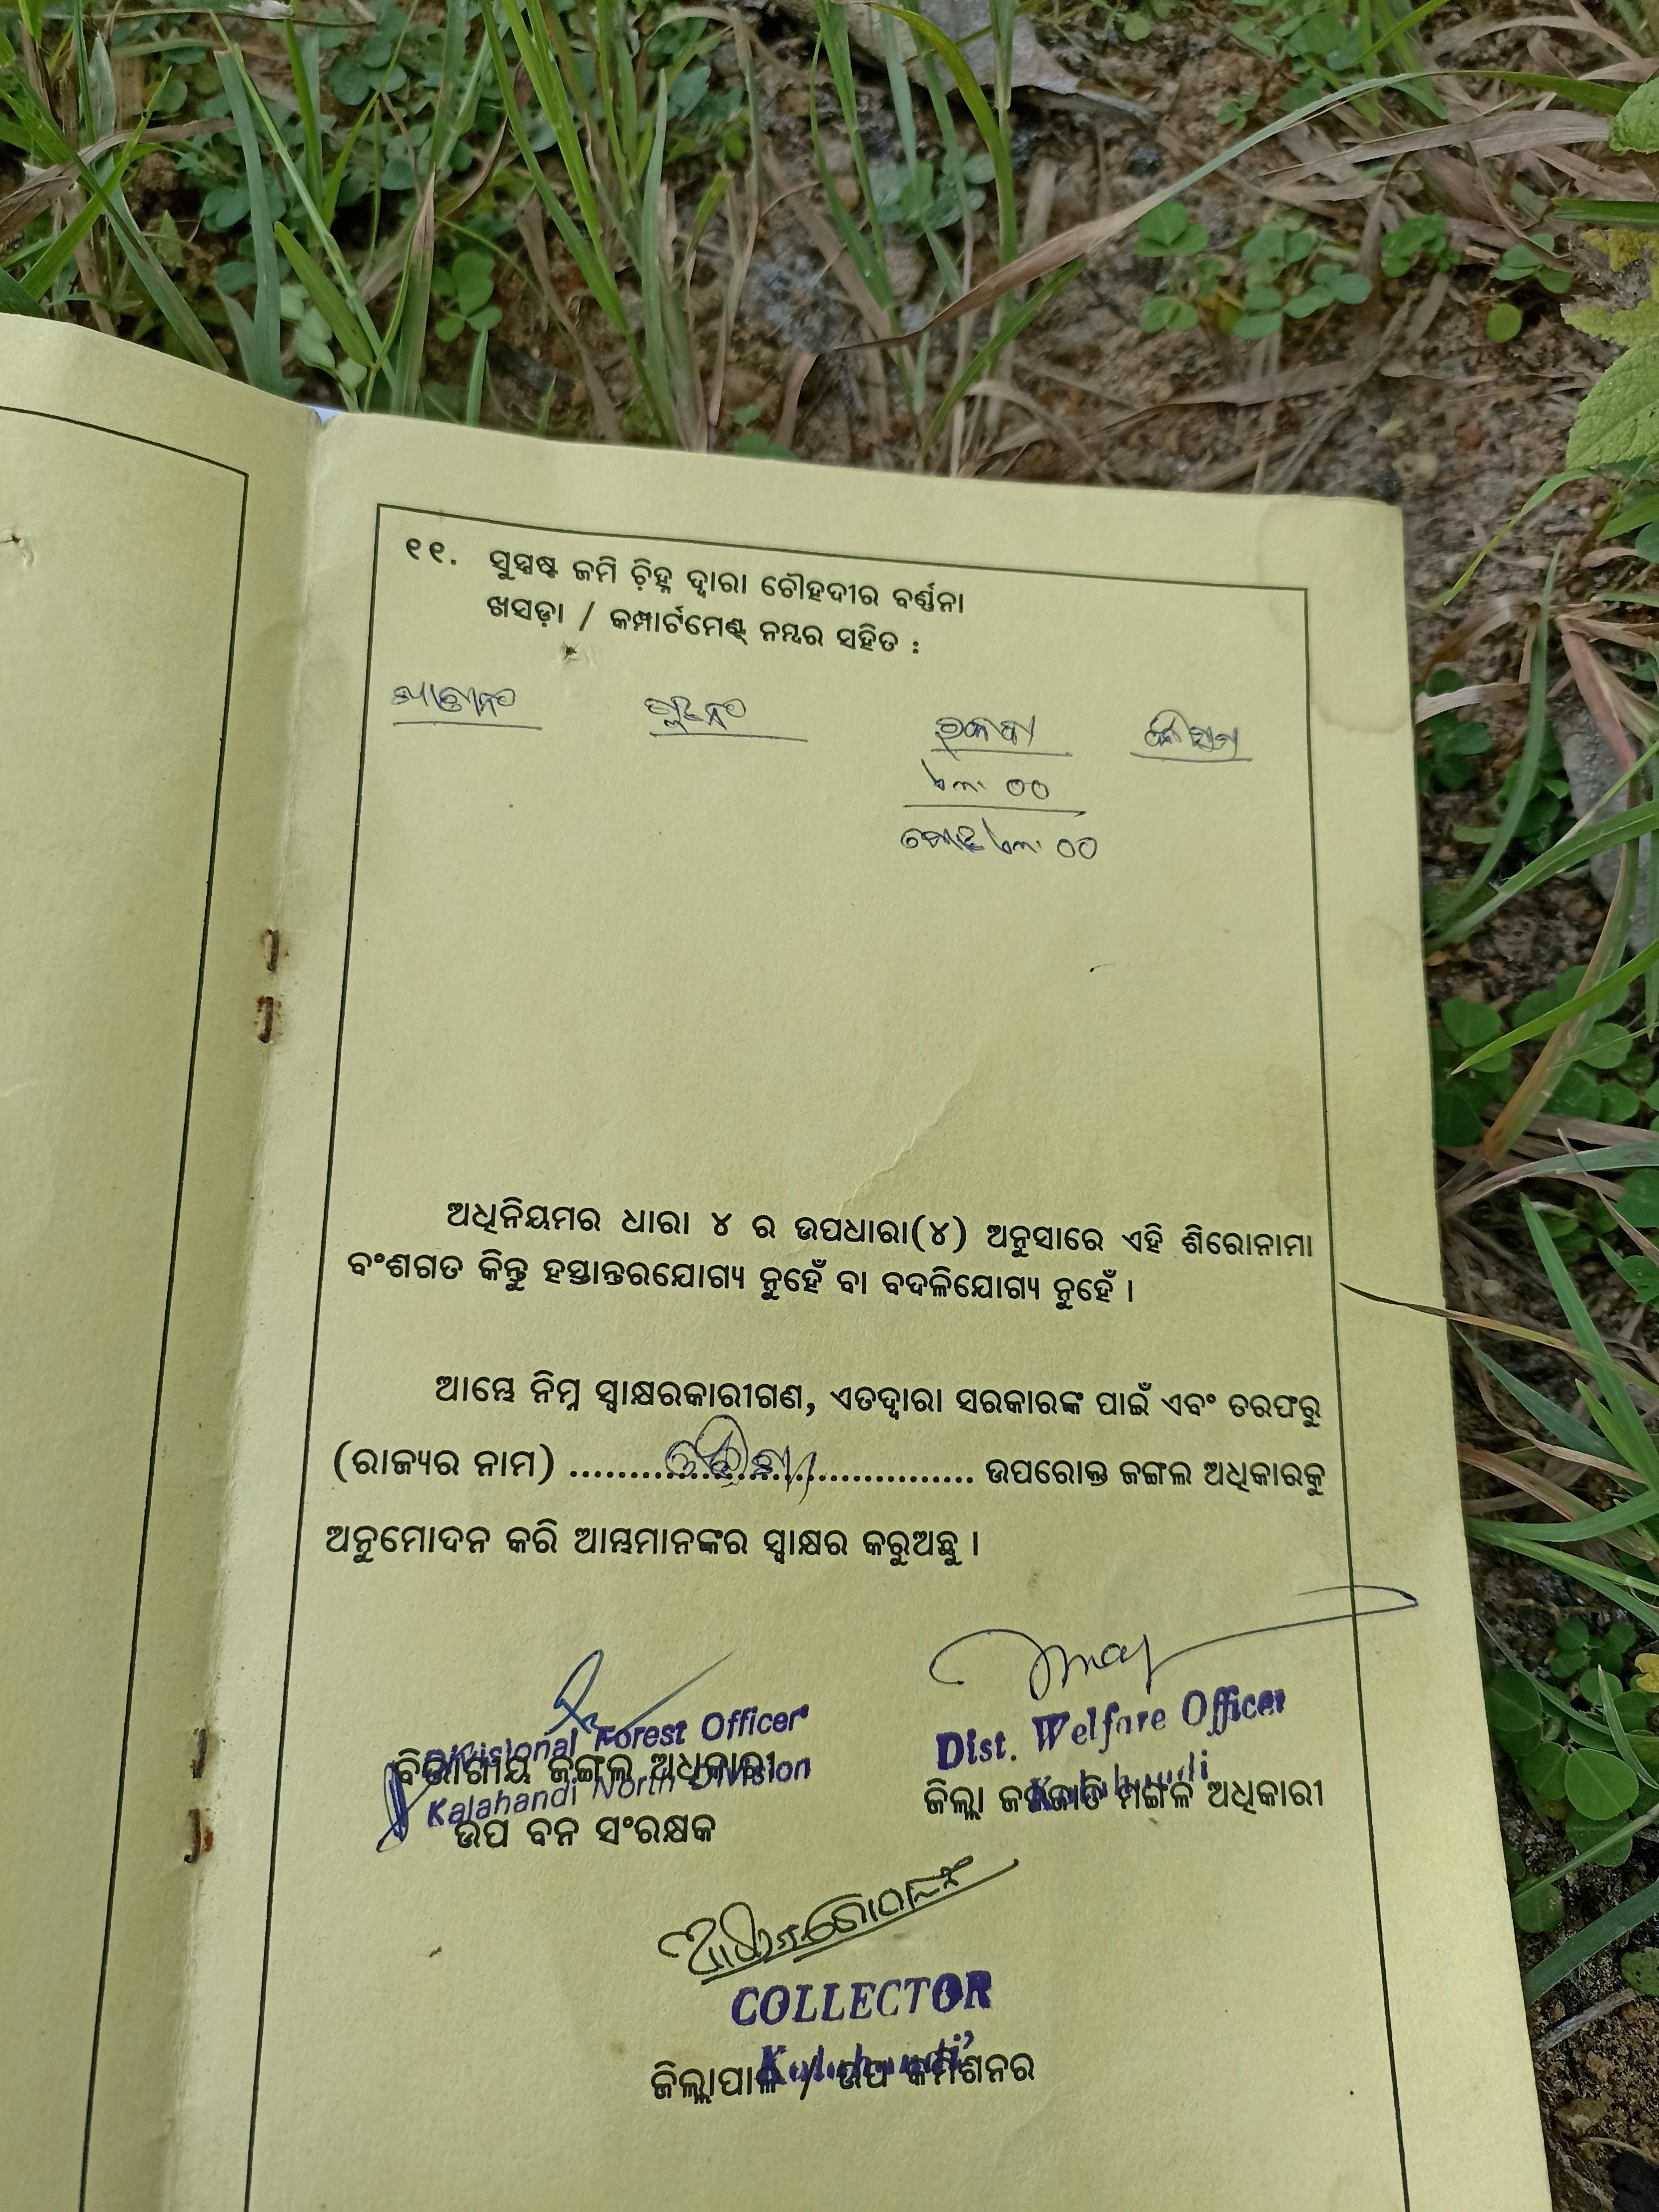 ୧୧. ସୁସ୍ପଷ୍ଟ ଜମି ଚ଼ିହ୍ନ ଦ୍ୱାରା ଚୌହଦୀର ବର୍ଣ୍ଣନା
ଖସଡ଼ା / କମ୍ପାର୍ଟମେଣ୍ଟ୍ ନମ୍ବର ସହିତ :
ଖାତାନଂ ପ୍ଲଟନଂ ରକବା କିସମ
ଏ୦ ୦୦
ମୋଟ ଏ୦ ୦୦
ଅଧିନିୟମର ଧାରା ୪ ର ଉପଧାରା(୪) ଅନୁସାରେ ଏହି ଶିରୋନାମା
ବଂଶଗତ କିନ୍ତୁ ହସ୍ତାନ୍ତରଯୋଗ୍ୟ ନୁହେଁ ବା ବଦଳିଯୋଗ୍ୟ ନୁହେଁ ।
ଆମ୍ଭେ ନିମ୍ନ ସ୍ୱାକ୍ଷରକାରୀଗଣ, ଏତଦ୍ୱାରା ସରକାରଙ୍କ ପାଇଁ ଏବଂ ତରଫରୁ
(ରାଜ୍ୟର ନାମ) ...ଓଡ଼ିଶା... ଉପରୋକ୍ତ ଜଙ୍ଗଲ ଅଧିକାରକୁ
ଅନୁମୋଦନ କରି ଆମ୍ଭମାନଙ୍କର ସ୍ୱାକ୍ଷର କରୁଅଛୁ ।
Divisional Forest Officer
ବିଭାଗୀୟ ଜଙ୍ଗଲ ଅଧିକାରୀ
Kalahandi North Division
ଉପ ବନ ସଂରକ୍ଷକ
Dist. Welfare Officer
Kalahandi
ଜିଲ୍ଲା ଜନଜାତି ମଙ୍ଗଳ ଅଧିକାରୀ
COLLECTOR
Kalahandi
ଜିଲ୍ଲାପାଳ / ଉପ କମିଶନର